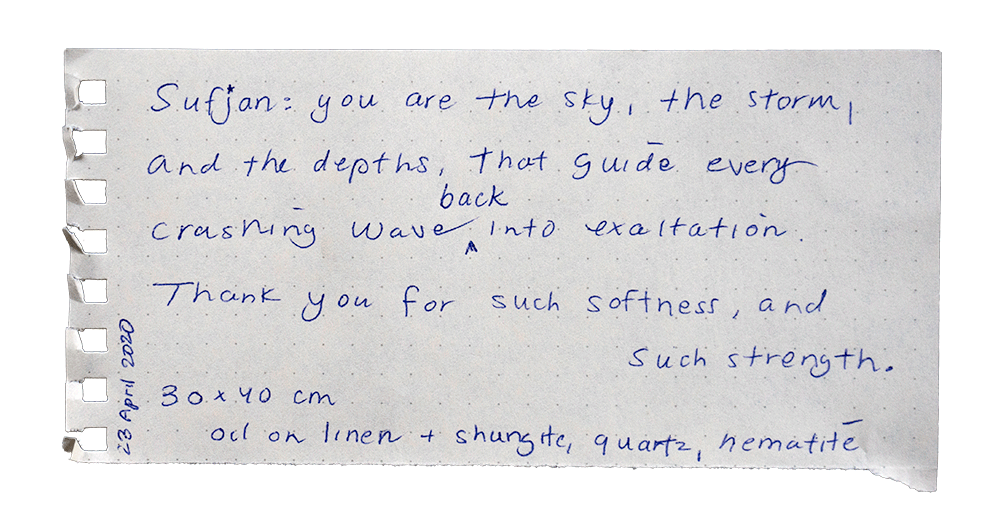 Sufjan: you are the sky, the storm,
and the depths, that guide every
crashing wave back into exaltation.
Thank you for such softness, and
such strength.
30 x 40 cm
oil on linen + shungite, quartz, hematite
23 April 2020